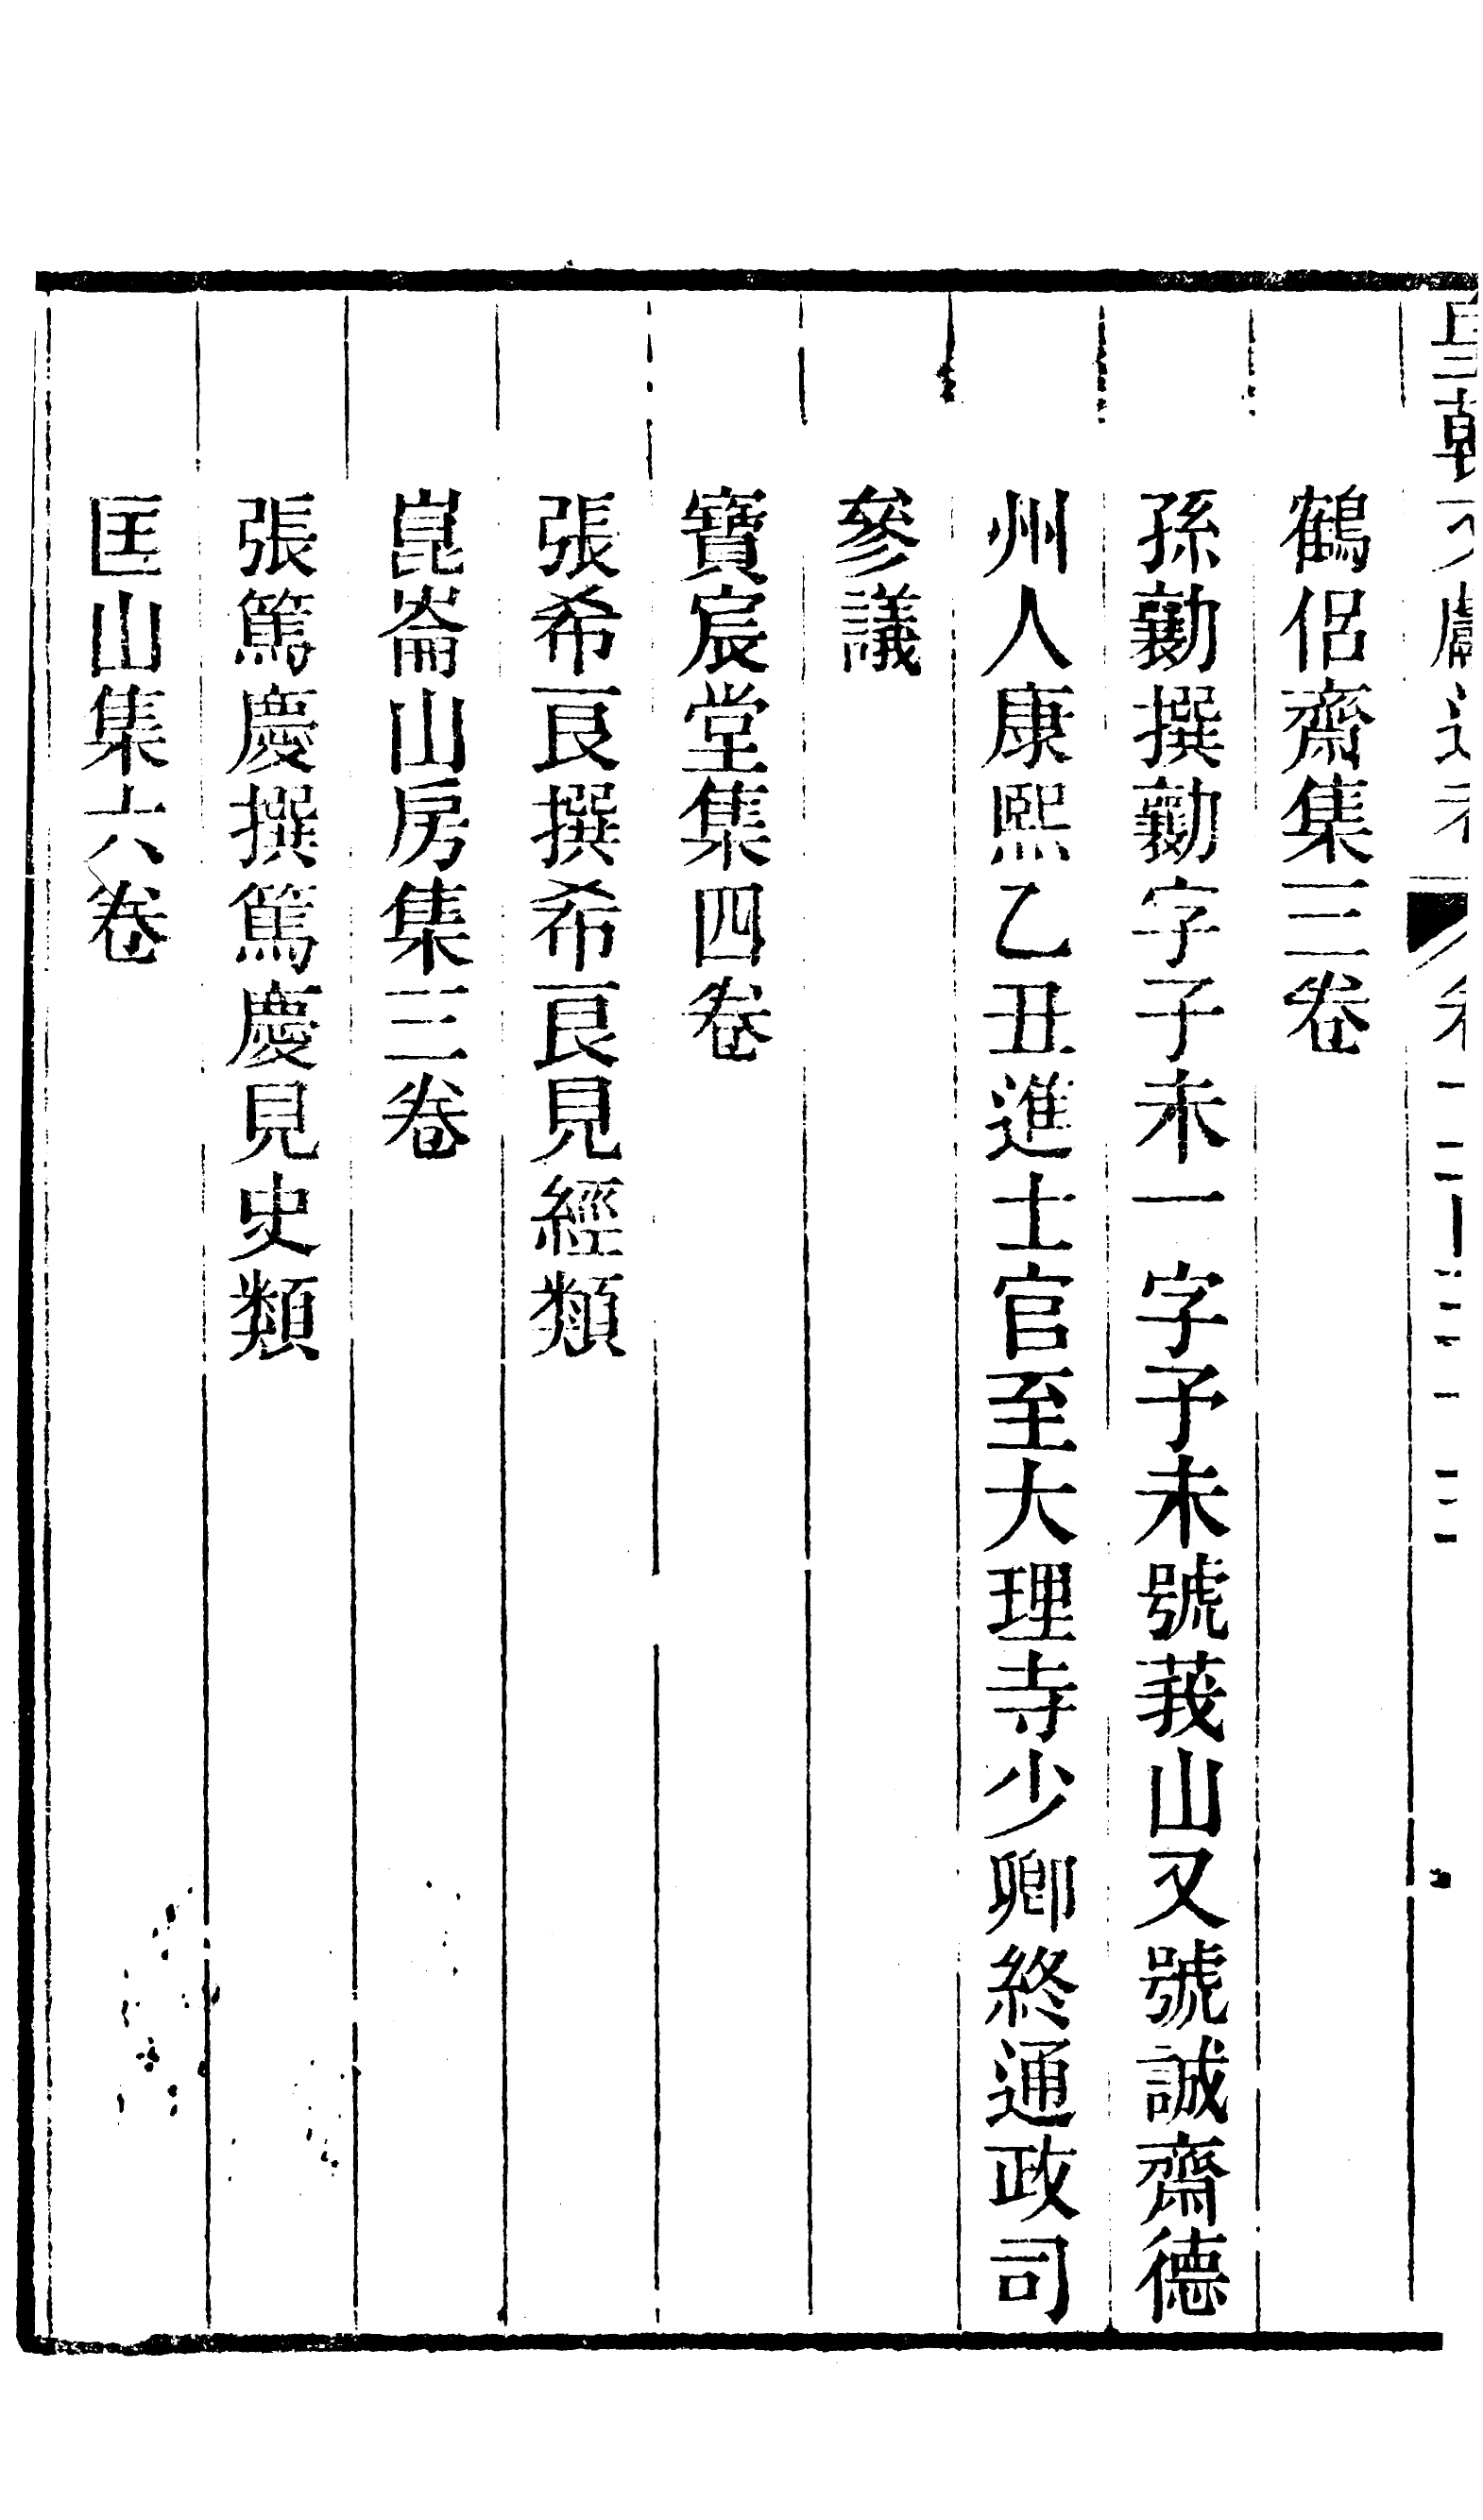 鶴侶齋集三卷
孫勷撰勷字子未一字予未號莪山又號誠齋德
州人康熙乙丑進士官至大理寺少卿終通政司
參議
寶宸堂集四卷
張希良撰希良見經類
崑崙山房集三卷
張篤慶撰篤慶見史類
匡山集六卷